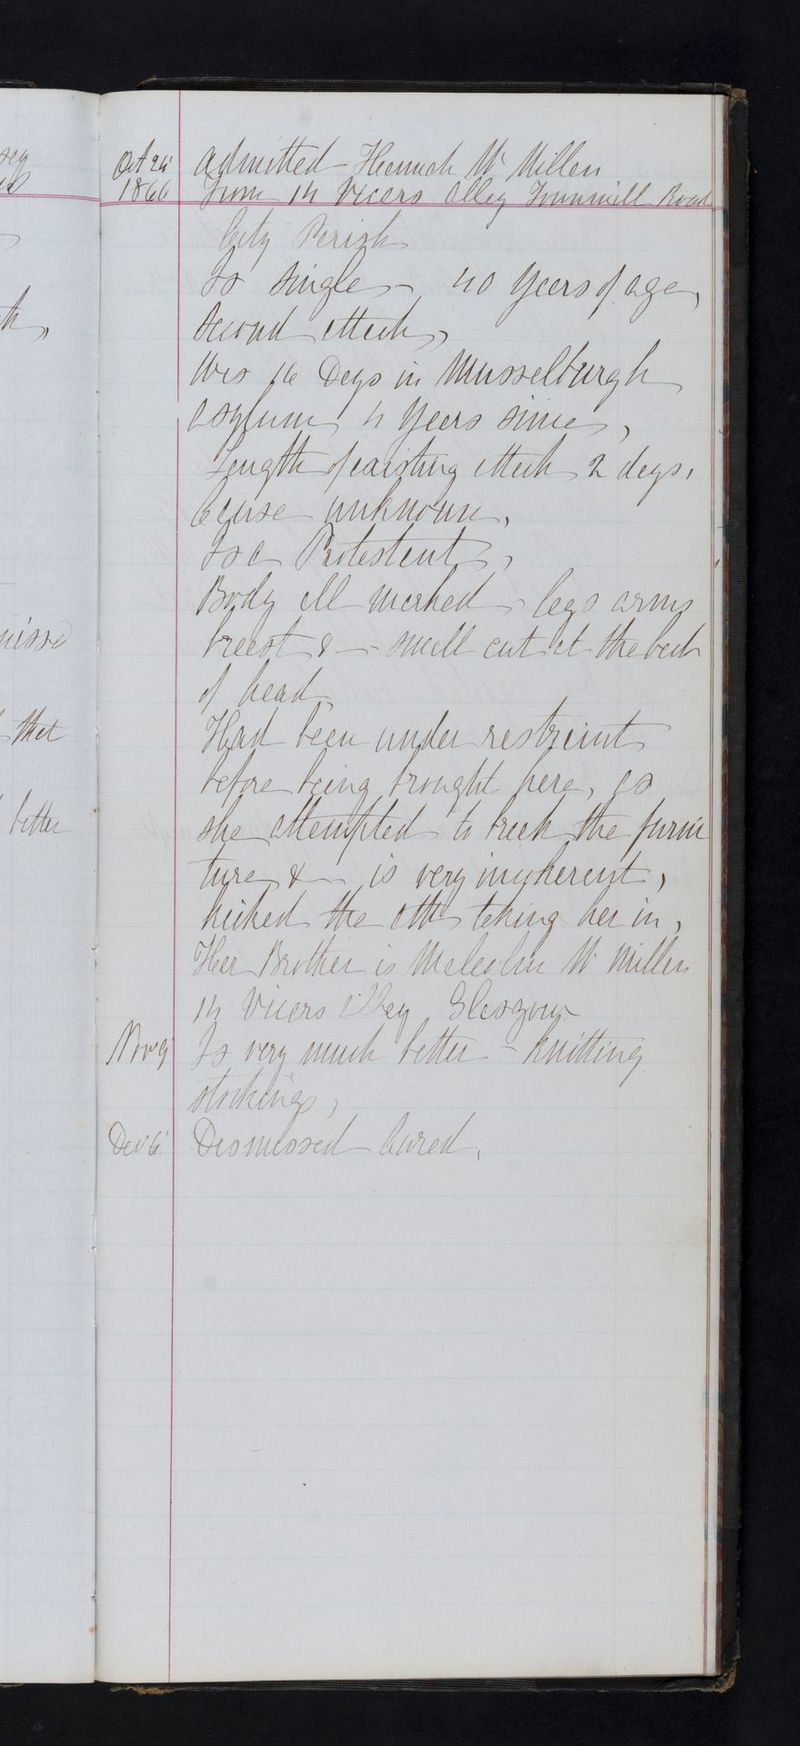 sey
k,
missd
that
better
Oct 24 Admitted Hannah Mc Millan
1866 From 14 Vicars Alley Townmill Road
City Parish
Is Single - 40 Years of age,
Second attack,
Was 16 Days in Musselburgh
Asylum 4 Years since,
Length of existing attack 2 days,
Cause unknown,
Is a Protestant,
Body all marked - legs arms
breast & - small cut at the back
of head
Had been under restraint
before being brought here, as
she attempted to break the furni
ture & - is very incoherent,
kicked the atts taking her in,
Her Brother is Malcolm Mc Millan
14 Vicars Alley Glasgow
Nov 9 Is very much better - knitting
stockings,
Dec 6 Dismissed Cured.